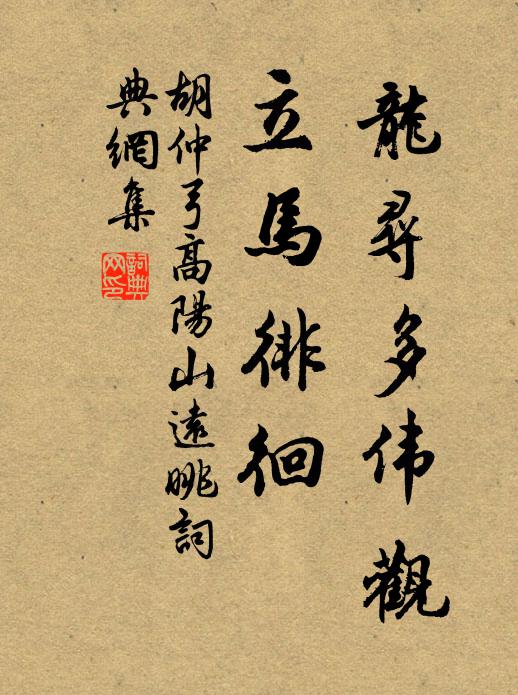 龍尋多伟觀
立馬徘徊
胡仲弓高陽山遠眺詞
典網集
詞典
网印